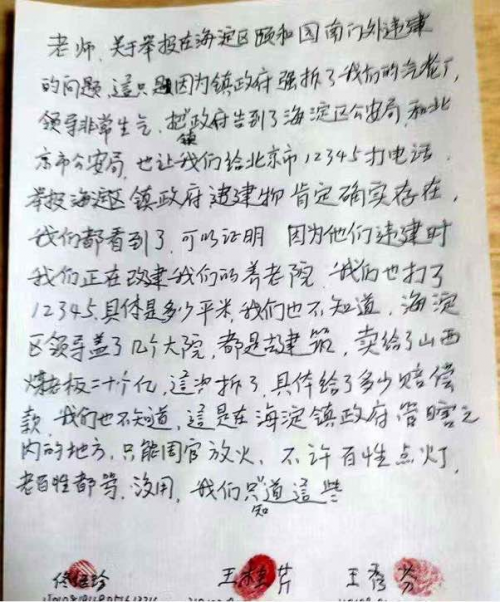 老师, 关于举报在海淀区颐和园南门外违建
的问题, 這只是因为镇政府强拆了我们的老厂,
领导非常生气, 把镇政府告到了海淀区公安局, 和北
京市公安局, 也让我们给北京市12345打电话,
举报海淀区镇政府违建物肯定确实存在,
我们都看到了, 可以证明 因为他们违建时
我们正在改建我们的养老院, 我们也打了
12345, 具体是多少平米, 我们也不知道, 海淀
区领导盖了几个大院, 都是古建筑, 卖给了山西
煤老板二十个亿, 這也拆了, 具体给了多少赔偿
款, 我们也不知道, 這是在海淀镇政府管瞎之
内的地方, 只能周官放火, 不许百性点灯,
老百性都等, 没用, 我们只知道這些
王桂芹 王秀芬